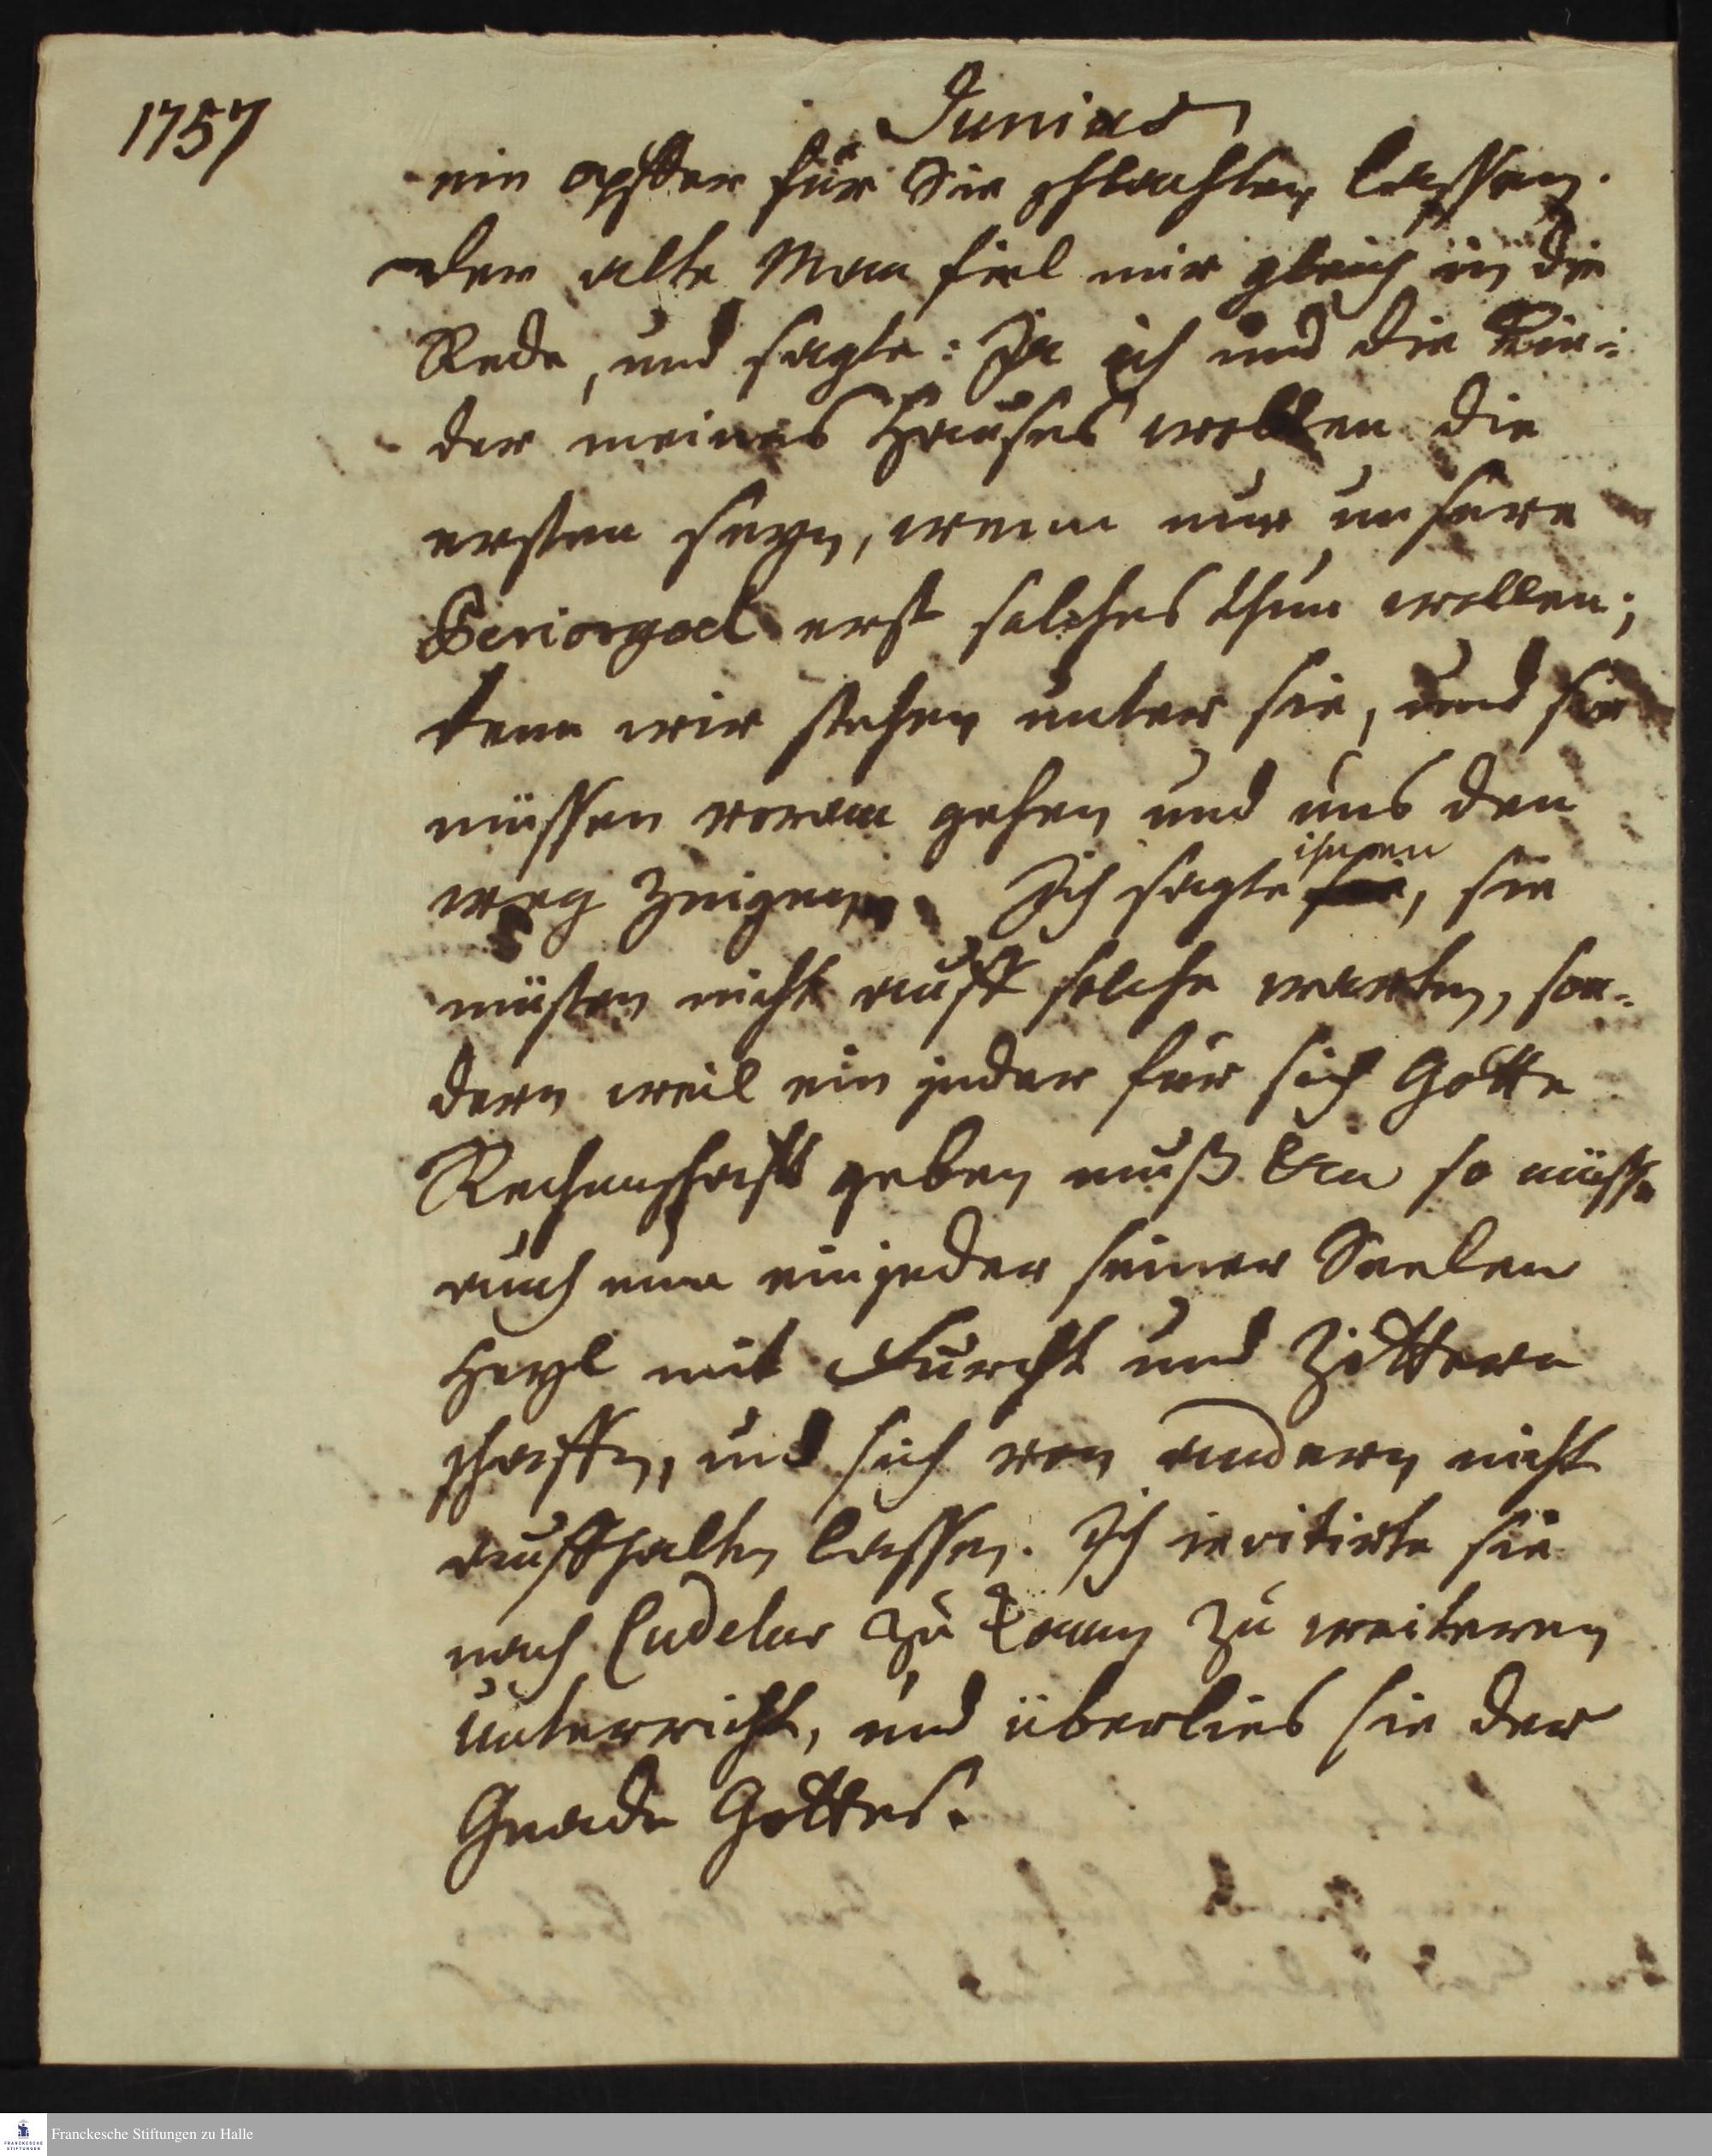 1757
Junius
ein opffer für Sie schlachten lassen.
der alte Man fiel mir gleich in die
Rede, und sagte: Ja ich und die Kin-
der meines Hauses wollen die
ersten seyn, wenn nur unsere
Periorgoel erst solches thun wollen;
denn wir stehen unter sie, und sie
müssen voran gehen und uns den
weg zeigen. Ich sagte ihnen, sie
müsten nicht auff solche warten, son-
dern weil ein jeder für sich Gotte
Rechenschafft geben muß so müsse
auch nun ein jeder seiner Seelen
Heyl mit Furcht und Zittern
schaffen, und sich von andern nicht
auffhalten lassen. Ich invitirte sie
nach Cudelur zu kommen zu weiteren
Unterricht, und überlies sie der
Gnade Gottes.
Franckesche Stiftungen zu Halle
FRANCKESCHE STIFTUNGEN